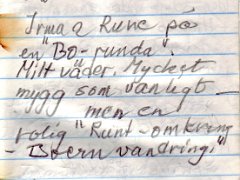 Irma o Rune på
en "Bo-runda".
Milt väder. Mycket
mygg som vanligt -
men en
rolig "Runt-omkring
- Boern vandring."